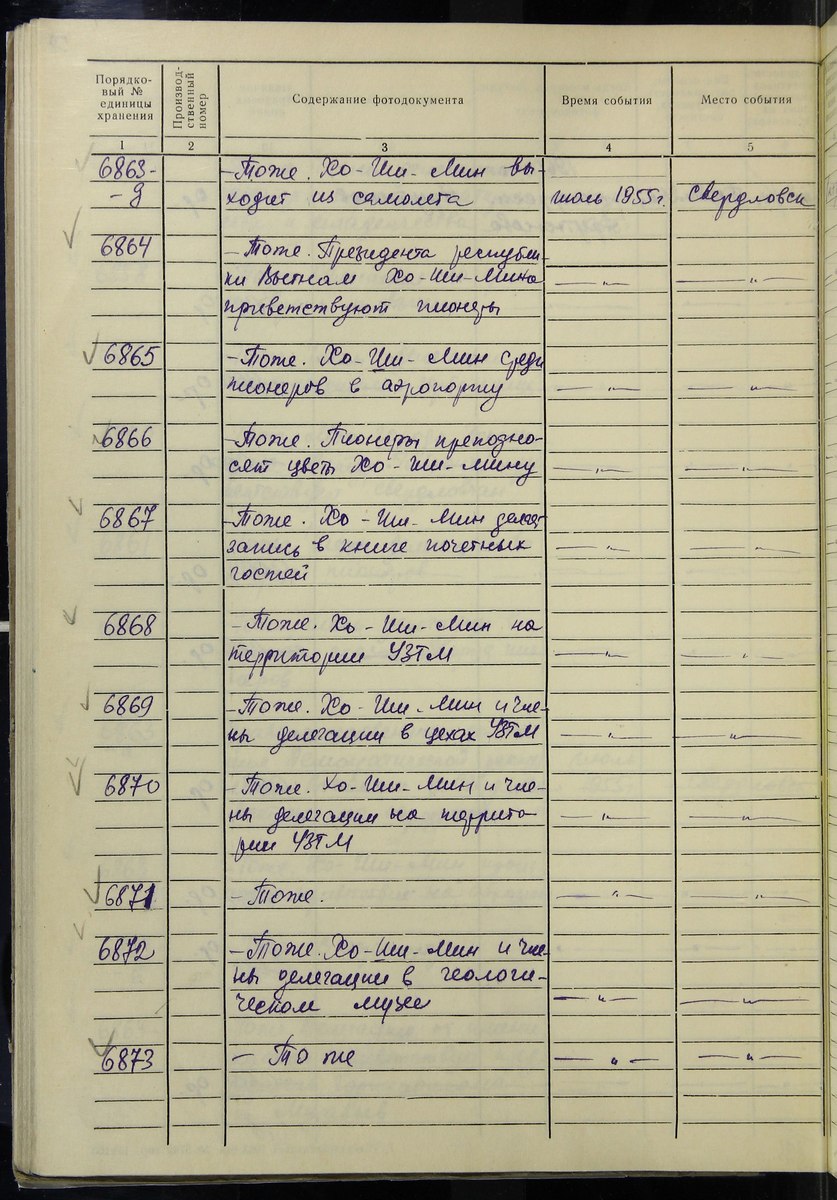 Порядко-
вый №
единицы
хранения
Производ-
ственный
номер
Содержание фотодокумента
Время события
Место события
1 2 3 4 5
6863- – Тоже. Хо-Ши-Мин вы-
-9 ходит из самолета июль 1955г. Свердловск
6864 – Тоже. Президента республи-
ки Вьетнам Хо-Ши-Мина – " – – " –
приветствуют пионеры
6865 – Тоже. Хо-Ши-Мин среди
пионеров в аэропорту – " – – " –
6866 – Тоже. Пионеры преподно-
сят цветы Хо-Ши-Мину – " – – " –
6867 – Тоже. Хо-Ши-Мин делает
запись в книге почетных – " – – " –
гостей
6868 – Тоже. Хо-Ши-Мин на
территории УЗТМ – " – – " –
6869 – Тоже. Хо-Ши-Мин и чле-
ны делегации в цехах УЗТМ – " – – " –
6870 – Тоже. Хо-Ши-Мин и чле-
ны делегации на террито – " – – " –
рии УЗТМ
6871 – Тоже. – " – – " –
6872 – Тоже. Хо-Ши-Мин и чле-
ны делегации в геологи-
ческом музее – " – – " –
6873 – То же – " – – " –